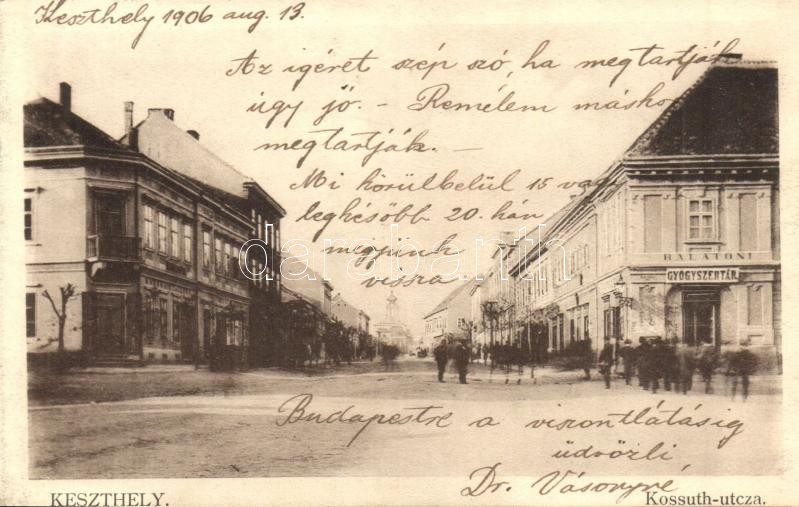 Keszthely 1906 aug. 13.
Az igéret szép szó, ha megtartják
úgy jó. - Remélem máskor
megtartják. -
Mi körülbelül 15 vagy
legkésöbb 20.-kán
megjünk
vissza.
BALATONI
GYÓGYSZERTÁR
darabanth
Budapestre a viszontlátásig
üdvözli
Dr. Vásonyné
KESZTHELY.
Kossuth-utcza.